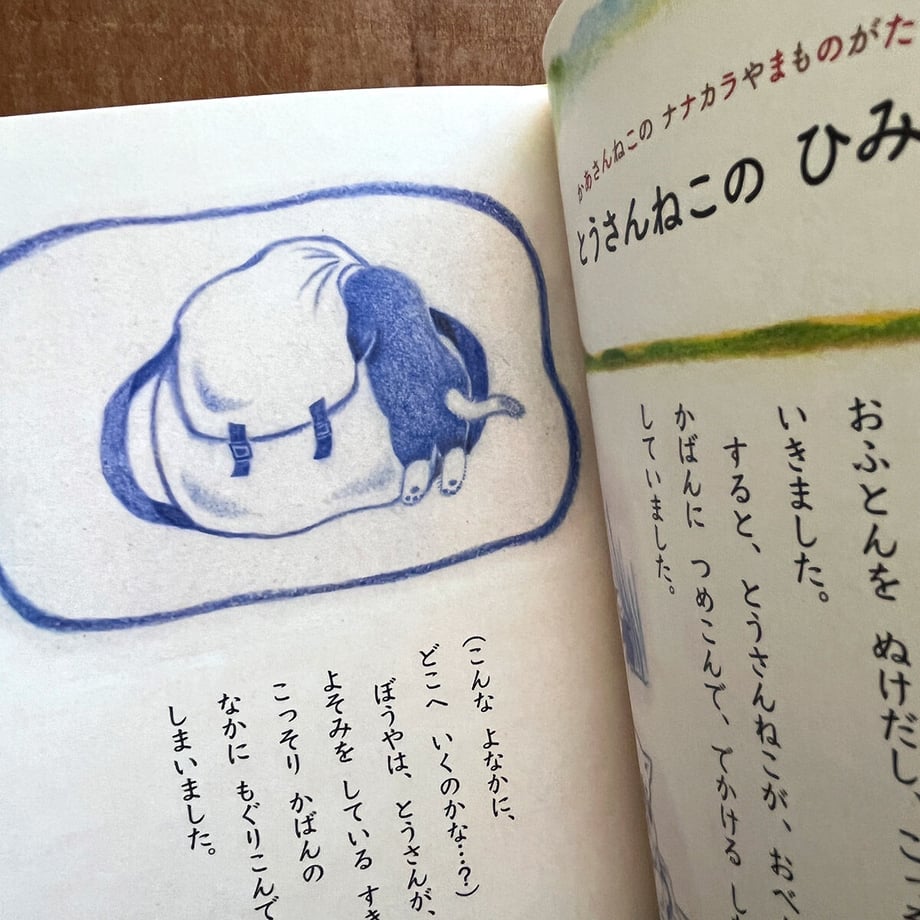 かあさんねこの ナナカラやまものがた
とうさんねこの ひみ
おふとんを ぬけだし、こ
いきました。
すると、とうさんねこが、おべ
かばんに つめこんで、でかける し
していました。
(こんな よなかに、
どこへ いくのかな…?)
ぼうやは、とうさんが、
よそみを している すき
こっそり かばんの
なかに もぐりこんで
しまいました。